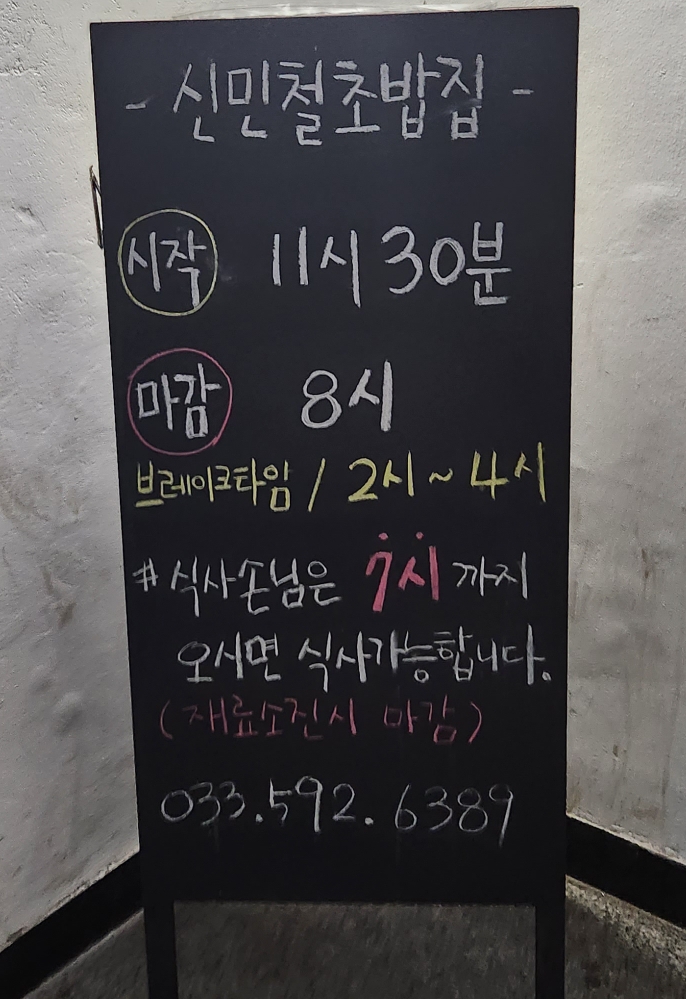 - 신민철초밥집 -
시작 11시 30분
마감 8시
브레이크타임 / 2시 ~ 4시
# 식사손님은 7시 까지
오시면 식사가능합니다.
(재료소진시 마감)
033.592.6389